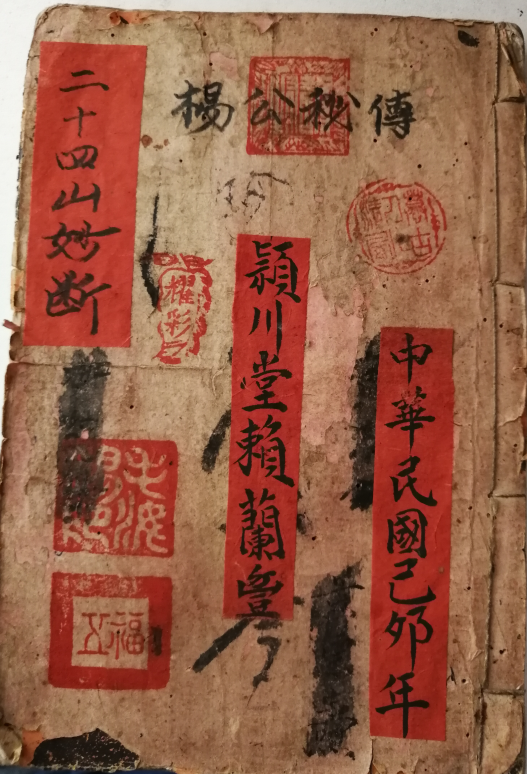 楊公秘傳
中華民國己夘年
頴川堂賴蘭
二十四山妙断
耀彩
福